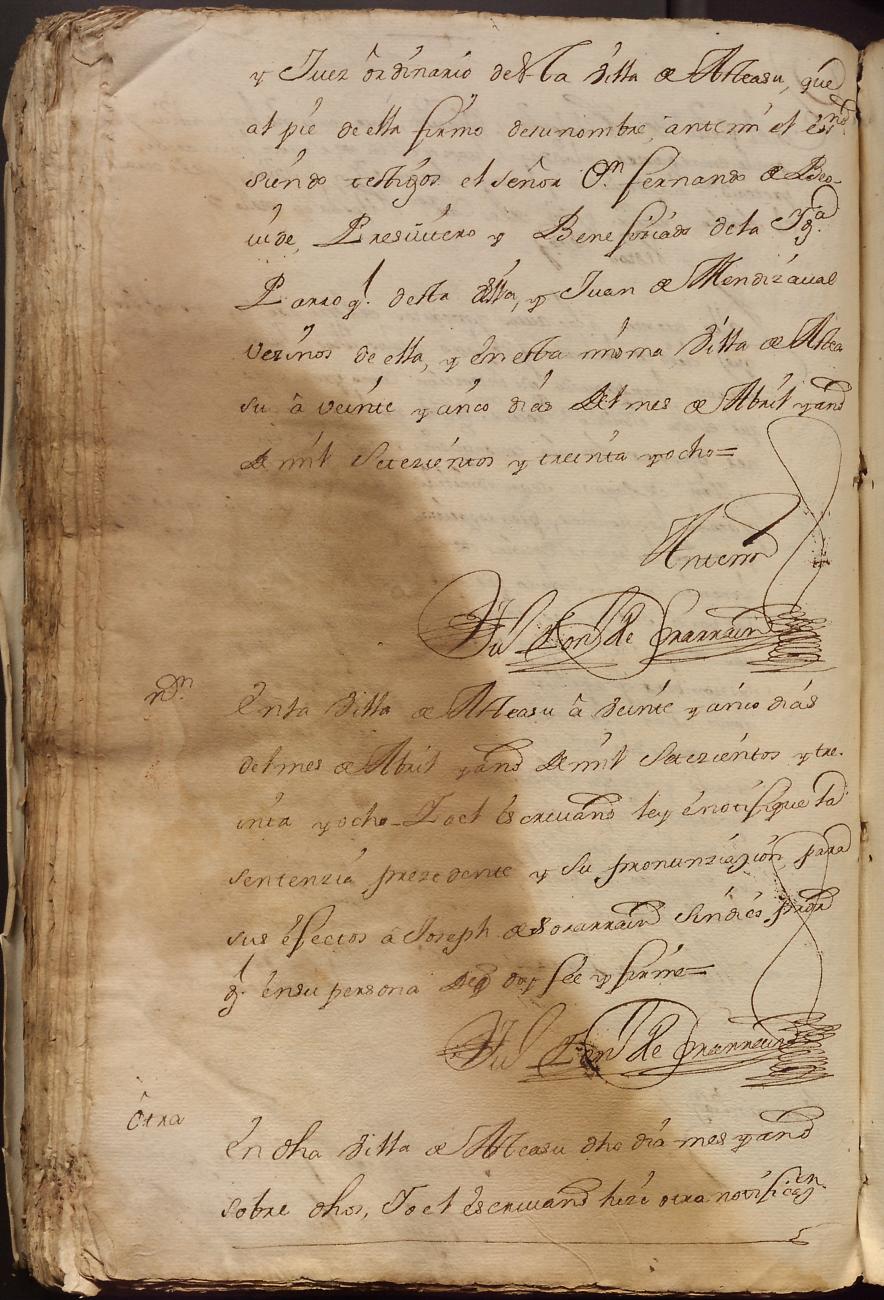 y Juez ordinario de esta Villa de Asteasu, que
al pie de ella firmo de su nombre, antemi el esno
siendo testigos el señor Dn fernando de Beo-
uide, Presuitero y Benefiziado de la Yga
Parroql. desta Villa, y Juan de Mendizaual
vezinos de ella, y en esta misma Villa de Astea
su â veinte y cinco dias del mes de Abril y año
de mil setezientos y treinta y ocho=
Antemi
de Sorarrain
non En la Villa de Asteasu â veinte y cinco dias
del mes de Abril y año de mil setezientos y tre-
inta y ocho Yo el escriuano ley é notifique la
sentenzia prezedente y su pronunziazion para
sus efectos â Joseph de Sorarrain Sindico
en su persona de q doy fee y firme=
de Sorarrain
Otra
En dha Villa de Asteasu dho dia mes y año
sobre dhos, Yo el escriuano hize otra notificazon